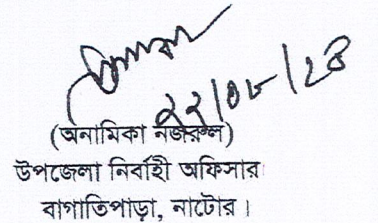 ২২/০৮/২৪
(অনামিকা নজরুল)
উপজেলা নির্বাহী অফিসার
বাগাতিপাড়া, নাটোর।